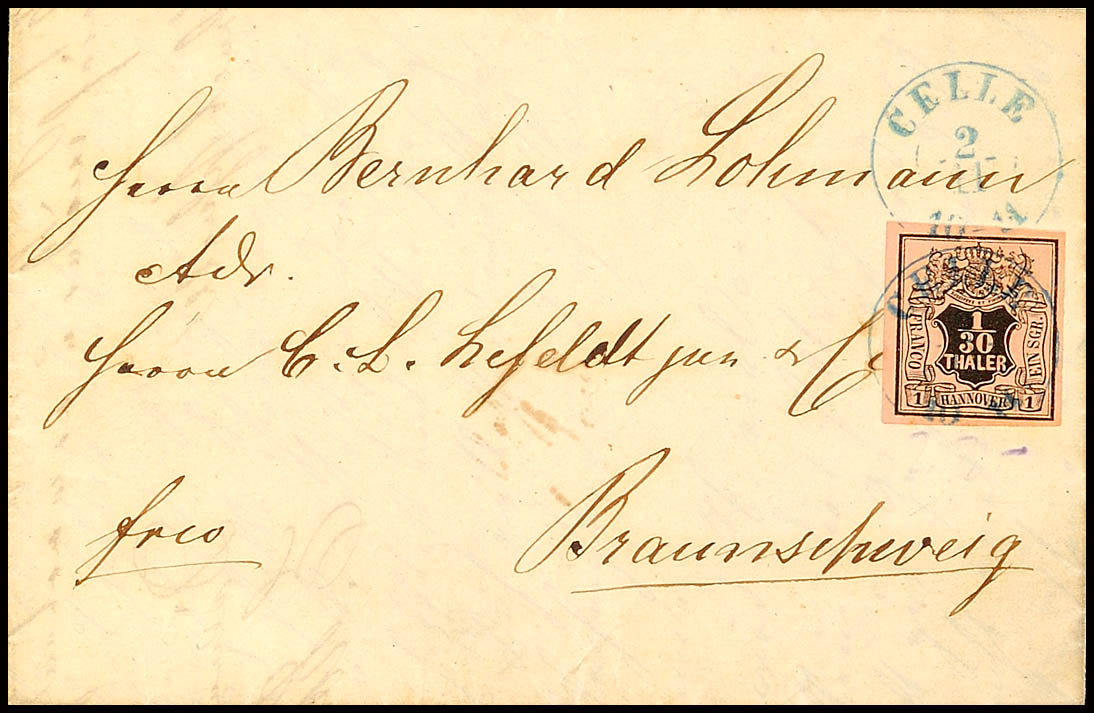 CELLE
2
11
10-11
Herrn Bernhard Lohmann
Adr.
Herrn C. L. Lefeldt jun & Co
frco
Braunschweig
FRANCO
1
30
THALER
EIN SGR.
1 HANNOVER 1